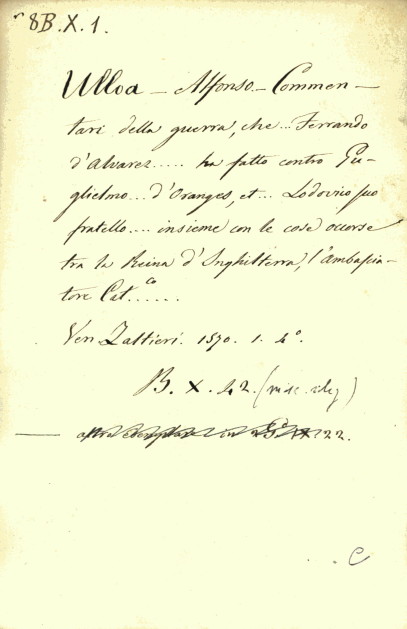 8B.X.1.
Ulloa – Alfonso – Commen–
tari della guerra, che... Ferrando
d'Alvarez..... ha fatto contro Gu–
glielmo... d'Oranges, et... Lodovico suo
fratello.... insieme con le cose occorse
tra la Reina d'Inghilterra, l'Ambascia–
tore Cat.co......
Ven. Zattieri. 1570. 1. 4°.
B. X. 42. (misc.
altro esemplare in 22.
C